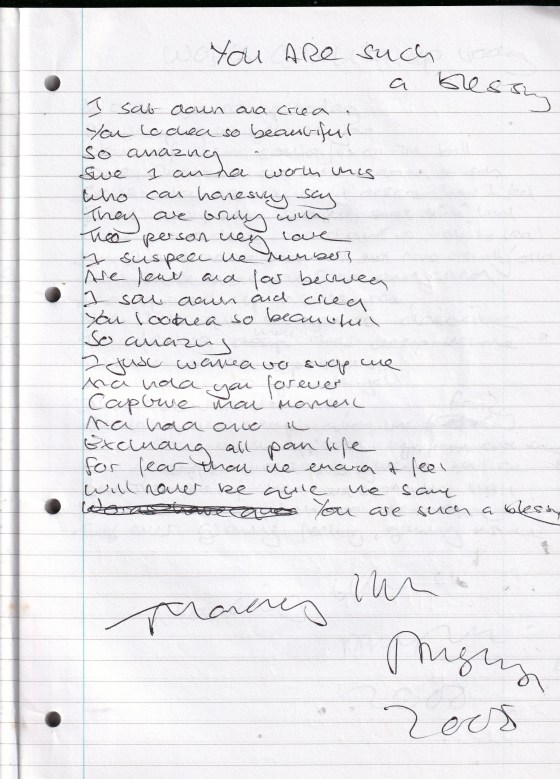 You ARE such
a blessing
I sat down and cried.
You looked so beautiful
So amazing
Sure I am not worth this
Who can honestly say
They are truly with
The person they love
I suspect the numbers
Are few and far between
I sat down and cried
You looked so beautiful
So amazing
I just wanted to stop time
And hold you forever
Capture that moment
And hold onto it
Excluding all part life
For fear that the emotion I feel
Will never be quite the same
You are such a blessing
11th
August
2005